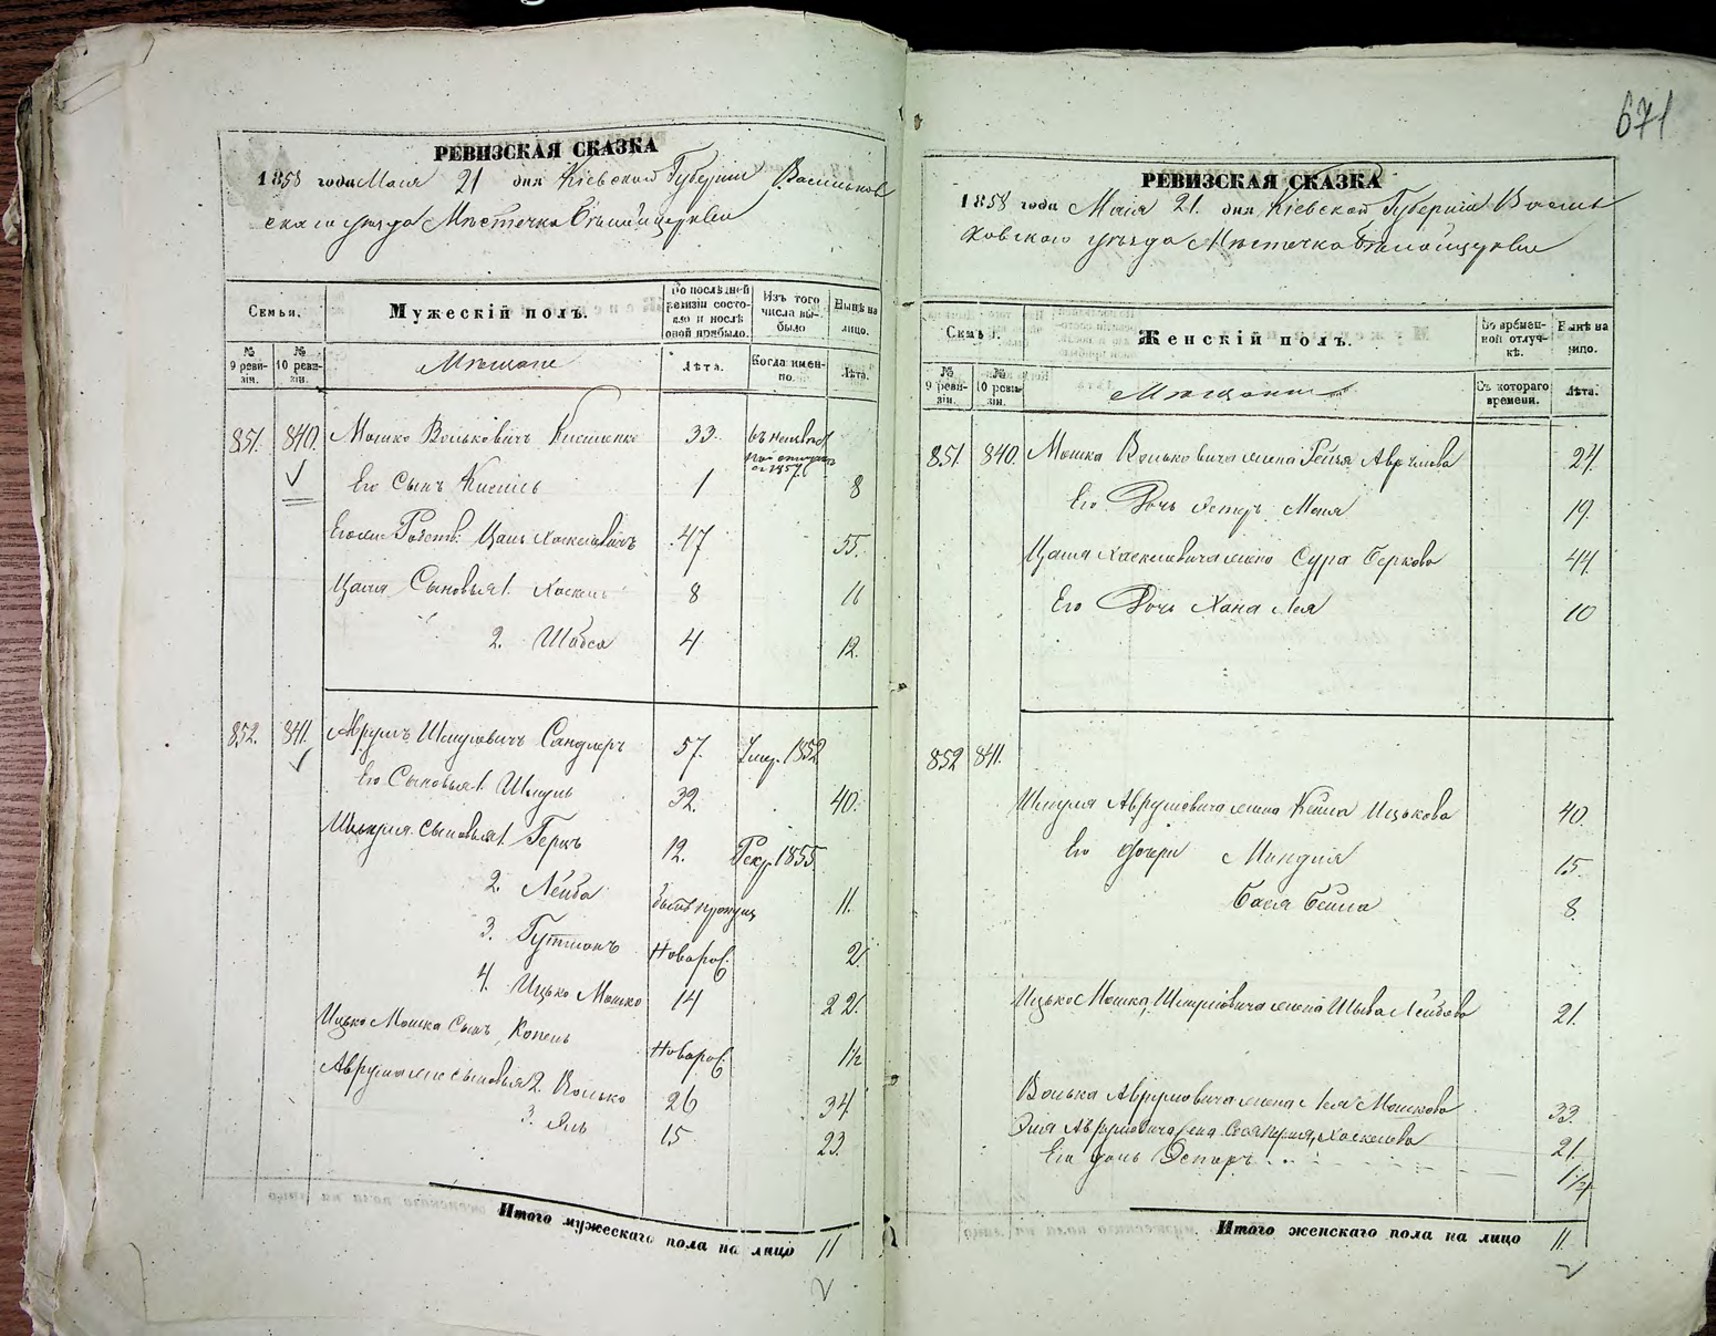 671
РЕВИЗСКАЯ СКАЗКА
1858 года Маія 21 дня Кіевской Губерніи Васильков
скаго уѣзда Мѣстечка Бѣлойцеркви
Семьи.
Мужескій полъ.
По послѣдней ревизіи состо-
яло и послѣ
оной прибыло.
Изъ того
числа вы-
было
Нынѣ на
лицо.
№
9 реви-
зіи.
№
10 реви-
зіи.
Мѣщане
Лѣта.
Когда имен-
но.
Лѣта.
851. 840. Мошко Вольковичъ 33.
съ 1857
Его Сынъ 1 8
Цаль Хаскелевичъ 47 55.
Цаля Сыновья 1. Хаскель 8 16
2. Шабса 4 12.
852. 841. Аврумъ Шмулевичъ Сандлеръ 57. Умер. 1852
Его Сыновья 1. Шмуль 32. 40.
Шмуля Сыновья 1. Гершъ 12. Рекр. 1855
2. Лейба 11.
3. Гутманъ Новорож. 2
4. Ицько Мошко 14 22.
Ицько Мошка Сынъ Копель Новорож. 1½
Аврума сыновья 2. Волько 26 34
3. Эль 15 23.
Итого мужескаго пола на лицо 11
РЕВИЗСКАЯ СКАЗКА
1858 года Маія 21. дня Кіевской Губерніи Василь
ковскаго уѣзда Мѣстечка Бѣлойцеркви
Семьи.
Женскій полъ.
Во времен-
ной отлуч-
кѣ.
Нынѣ на
лицо.
№
9 реви-
зіи.
№
10 реви-
зіи.
Мѣщанки
Съ котораго
времени.
Лѣта.
851. 840. Мошка Вольковича жена Рейзя Аврумова 24
Его Дочь Эстеръ Маня 19.
Цаля Хаскелевича жена Сура Беркова 44
Его Дочь Хана Лея 10
852 841.
Шмуля Аврумовича жена Кейла Ицькова 40.
Его дочери Миндля 15
Бася Бейла 8
Ицько Мошка Шмулевича жена Лейбова 21.
Волька Аврумовича жена Лея Мошкова 33.
Эля Аврумовича жена Хаскелева 21
Его дочь Эстеръ 1½
Итого женскаго пола на лицо 11.